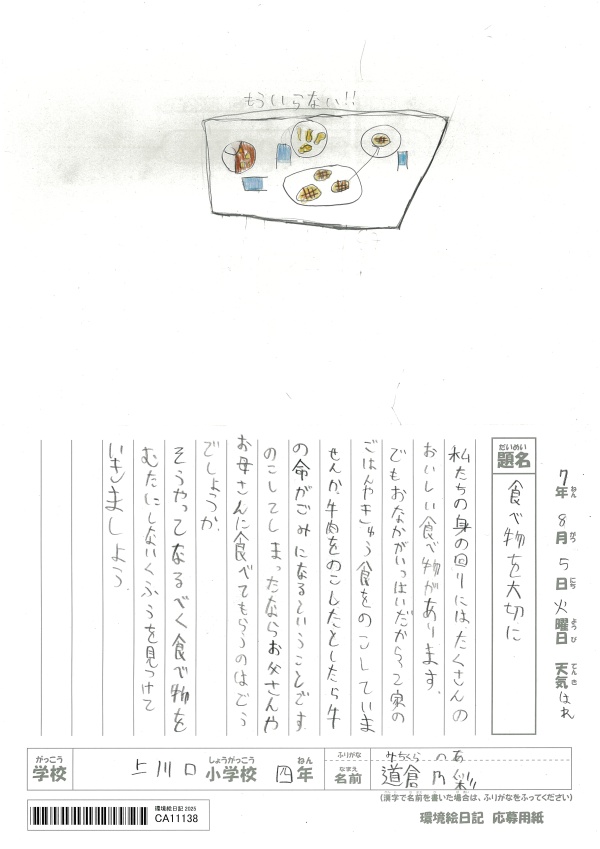 もういらない!!
7年 8月 5日 火曜日 天気 はれ
ねん がつ にち ようび てんき
だいめい
題名
食べ物を大切に
私たちの身の回りにはたくさんの
おいしい食べ物があります。
でもおなかがいっぱいだからって家の
ごはんやきゅう食をのこしていま
せんか。牛肉をのこしたとしたら牛
の命がごみになるということです。
のこしてしまったならお父さんや
お母さんに食べてもらうのはどう
でしょうか。
そうやってなるべく食べ物を
むだにしないくふうを見つけて
いきましょう。
がっこう しょうがっこう ねん
学校 上川口 小学校 四年
ふりがな みちくら のあ
なまえ
名前 道倉 乃彩
(漢字で名前を書いた場合は、ふりがなをふってください)
環境絵日記 2025
CA11138
環境絵日記 応募用紙